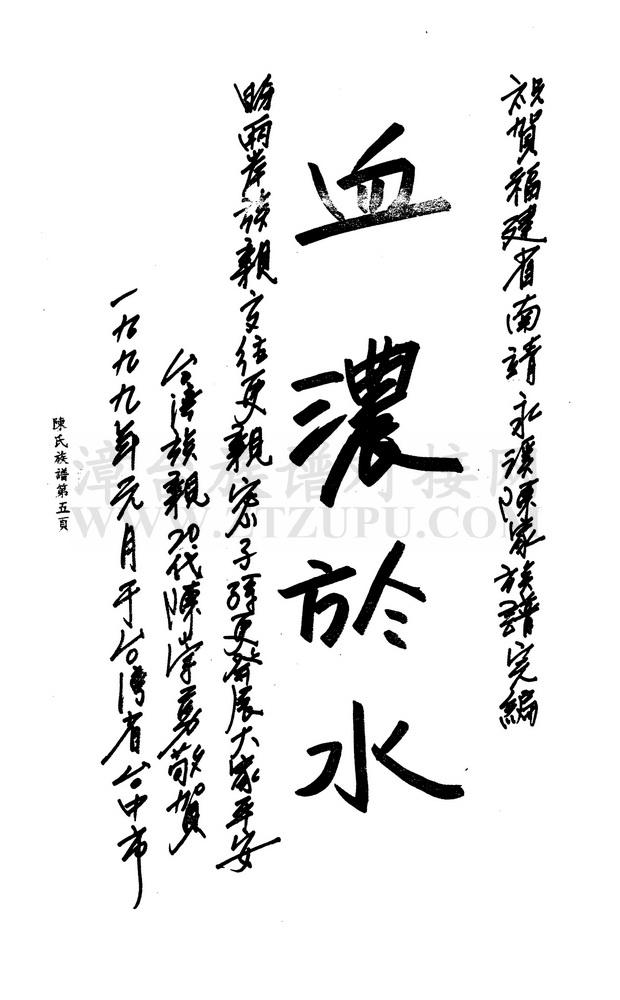 祝賀福建省南靖永溪陳家族譜完編
血濃於水
盼兩岸族親交往更親密子孫更發展大家平安
台灣族親20代陳崇勇敬賀
一九九九年元月于台灣省台中市
陳氏族譜第五頁
漳台族谱对接网
WWW.ZTZUPU.COM